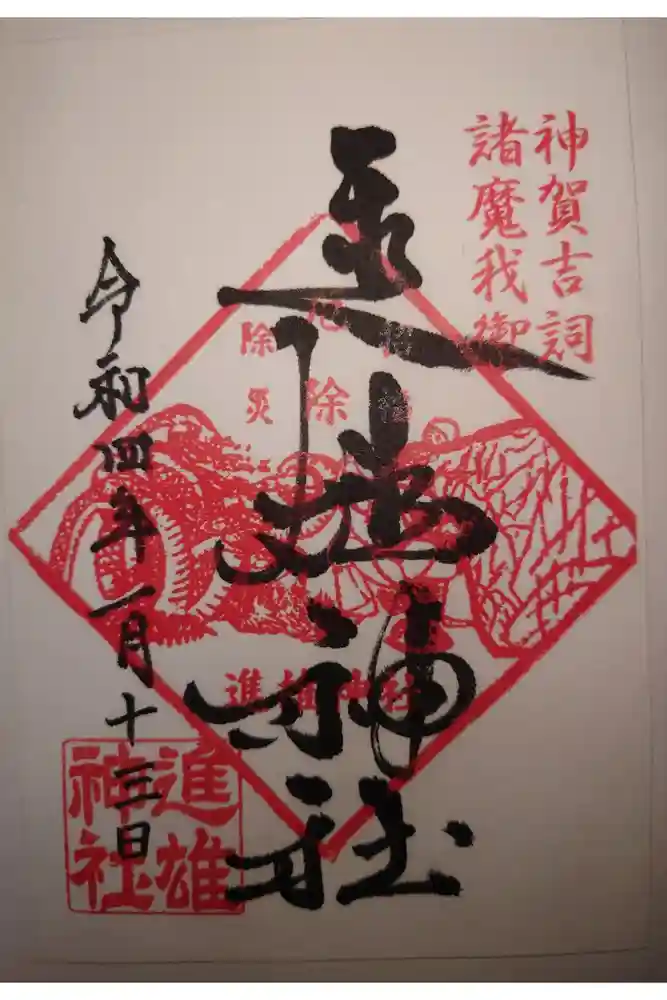 神賀吉詞
諸魔我御
進雄神社
除災
除
進雄神社
令和四年一月十三日
進雄
神社